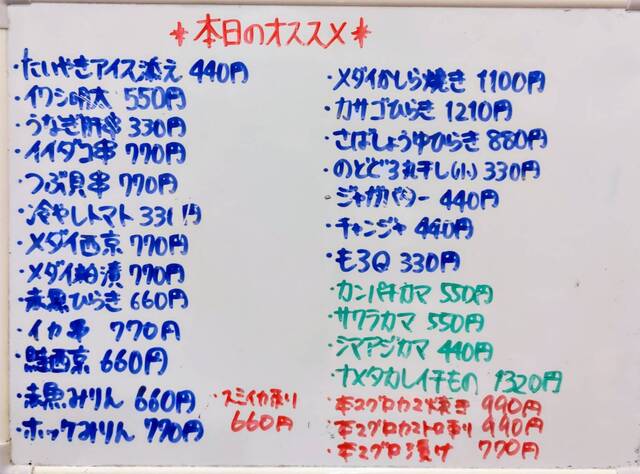 *本日のオススメ*
・たいやきアイス添え 440円
・イワシ明太 550円
・うなぎ肝串 330円
・イイダコ串 770円
・つぶ貝串 770円
・冷やしトマト 330円
・メダイ西京 770円
・メダイ粕漬 770円
・赤魚ひらき 660円
・イカ串 770円
・鮭西京 660円
・赤魚みりん 660円
・ホッケみりん 770円
・スミイカ刺り
660円
・メダイかしら焼き 1100円
・カサゴひらき 1210円
・さばしょうゆひらき 880円
・のどぐろ丸干し(小) 330円
・ジャガバター 440円
・チャンジャ 440円
・もろQ 330円
・カンパチカマ 550円
・サワラカマ 550円
・シマアジカマ 440円
・ナメタカレイ干もの 1320円
・本マグロカマ焼き 990円
・本マグロカマトロ刺り 990円
・本マグロ漬け 770円